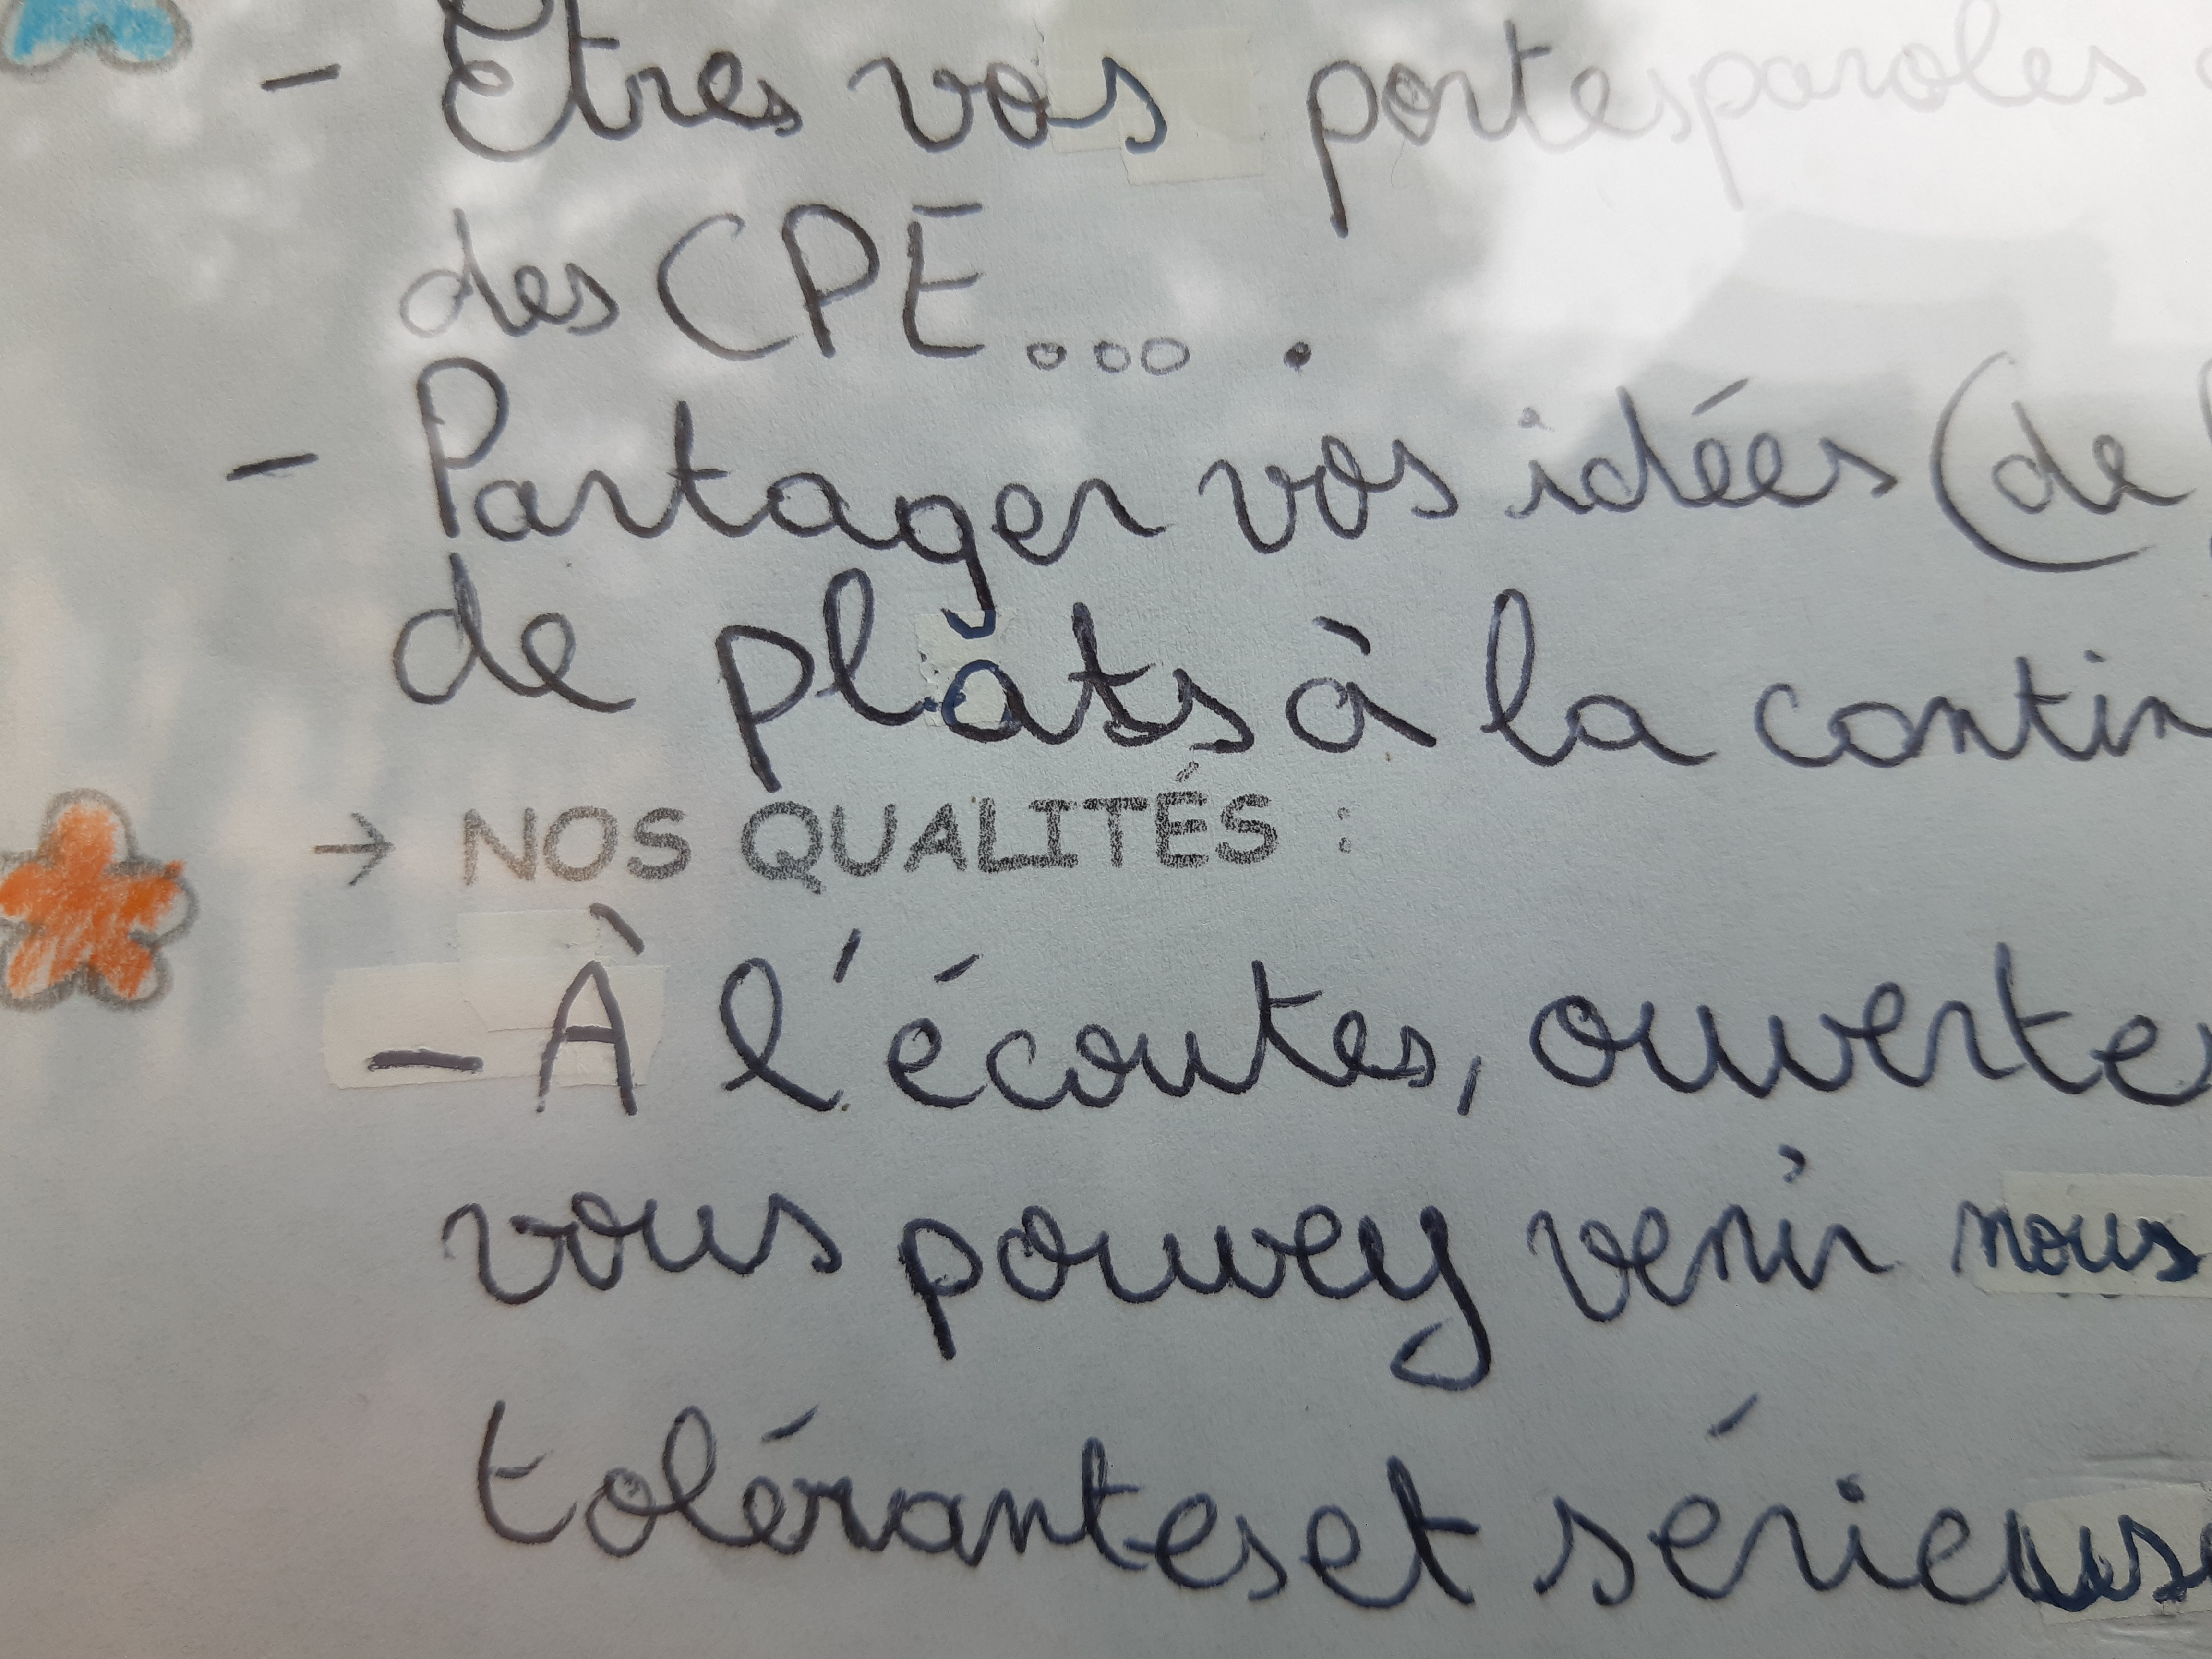 - Êtres vos portesparoles
des CPE... .
- Partager vos idées (de
de plats à la contin
→ NOS QUALITÉS :
- À l'écoutes, ouvertes
vous pouvez venir nous
toléranteset sérieuse